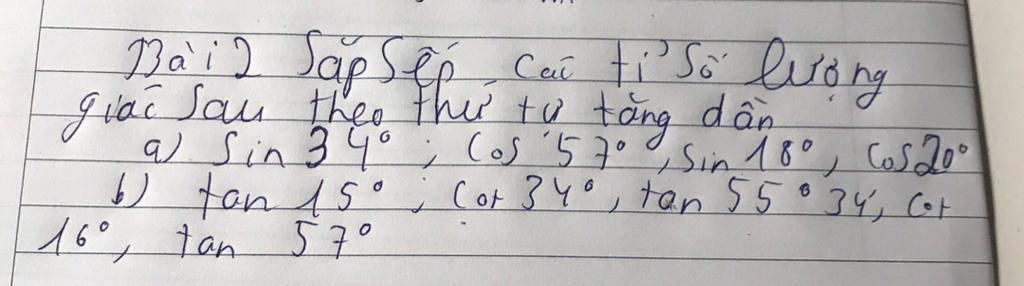 Bài 2 Sắp Sếp các tỉ số lượng
giác sau theo thứ tự tăng dần
a) Sin 34° ; Cos 57° , sin 18° , Cos 20°
b) tan 15° ; Cot 34° , tan 55° 34', Cot
16° , tan 57°